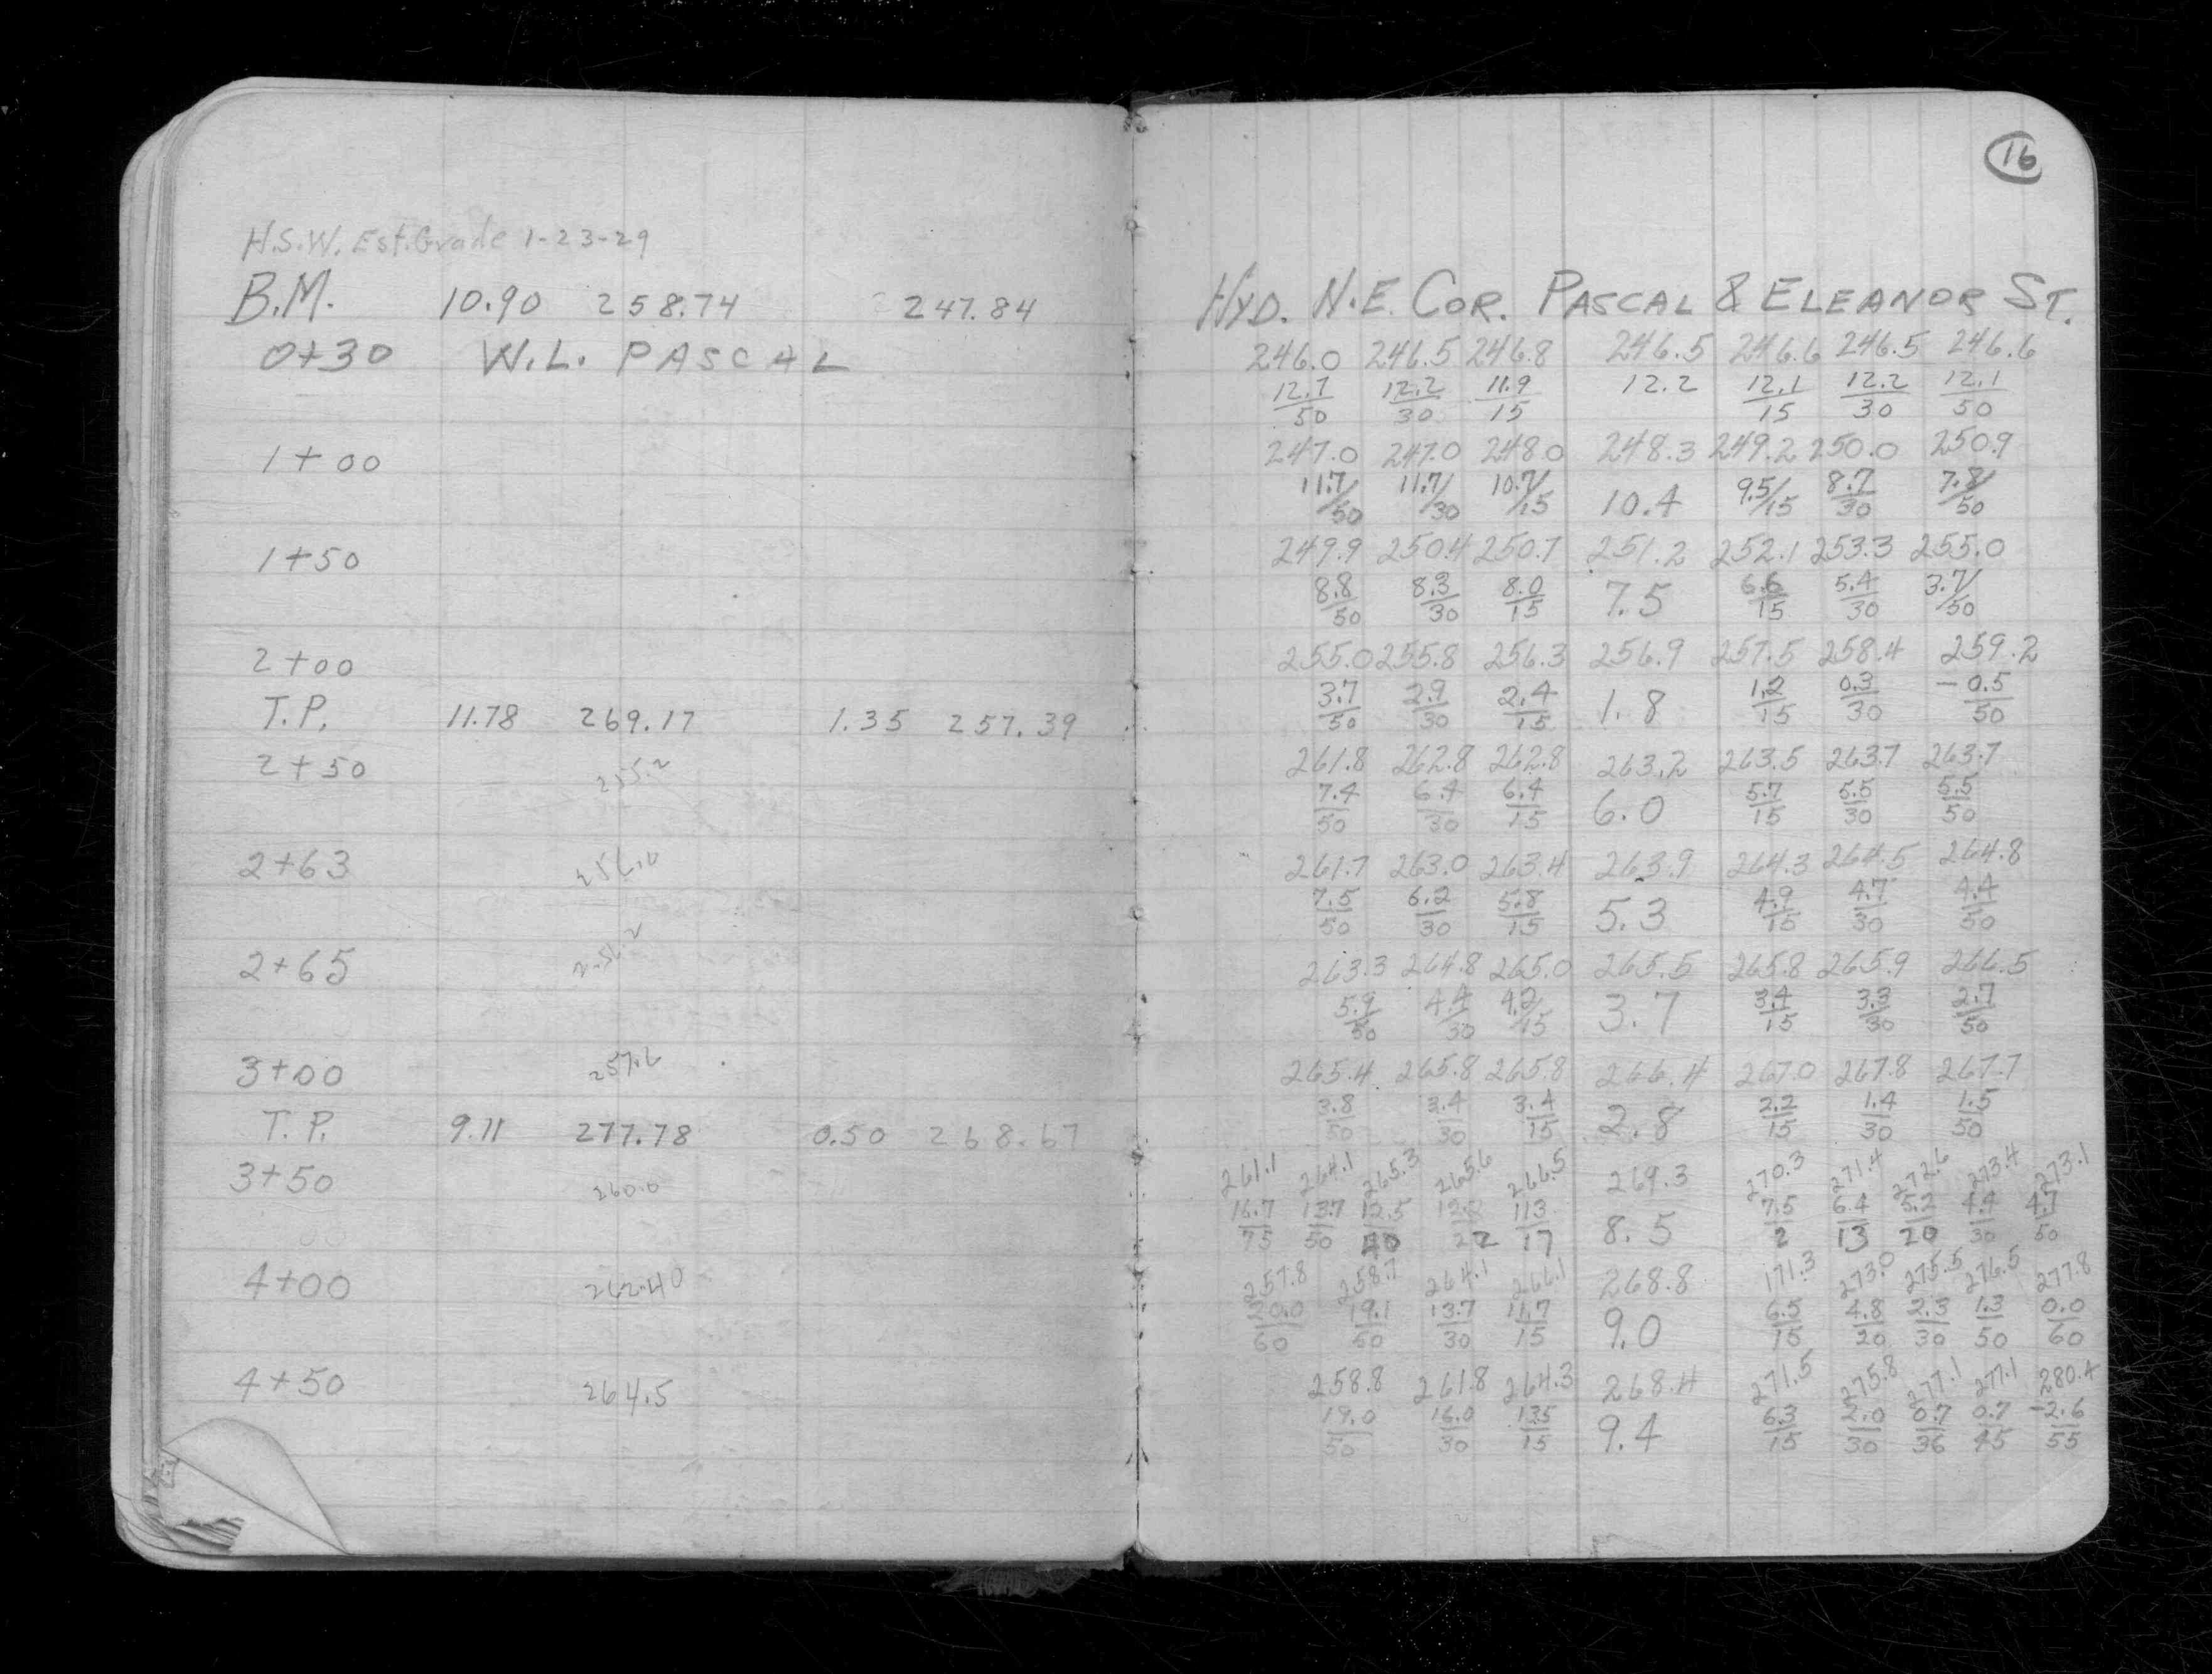 16
H.S.W. Est. Grade 1-23-29
B.M. 10.90 258.74 247.84 HYD. N.E. COR. PASCAL & ELEANOR ST.
0+30 W.L. PASCAL 246.0 246.5 246.8 246.5 246.6 246.5 246.6
12.7/50 12.2/30 11.9/15 12.2 12.1/15 12.2/30 12.1/50
1+00 247.0 247.0 248.0 248.3 249.2 250.0 250.9
11.7/50 11.7/30 10.7/15 10.4 9.5/15 8.7/30 7.8/50
1+50 249.9 250.4 250.7 251.2 252.1 253.3 255.0
8.8/50 8.3/30 8.0/15 7.5 6.6/15 5.4/30 3.7/50
2+00 255.0 255.8 256.3 256.9 257.5 258.4 259.2
T.P. 11.78 269.17 1.35 257.39 3.7/50 2.9/30 2.4/15 1.8 1.2/15 0.3/30 -0.5/50
2+50 255.2 261.8 262.8 262.8 263.2 263.5 263.7 263.7
7.4/50 6.4/30 6.4/15 6.0 5.7/15 5.5/30 5.5/50
2+63 256.0 261.7 263.0 263.4 263.9 264.3 264.5 264.8
7.5/50 6.2/30 5.8/15 5.3 4.9/15 4.7/30 4.4/50
2+65 263.3 264.8 265.0 265.5 265.8 265.9 266.5
5.9/50 4.4/30 4.2/15 3.7 3.4/15 3.3/30 2.7/50
3+00 257.6 265.4 265.8 265.8 266.4 267.0 267.8 267.7
T.P. 9.11 277.78 0.50 268.67 3.8/50 3.4/30 3.4/15 2.8 2.2/15 1.4/30 1.5/50
3+50 260.0 261.1 264.1 265.3 265.6 266.5 269.3 270.3 271.4 272.6 273.4 273.1
16.7/75 13.7/50 12.5/40 12.2/22 11.3/17 8.5 7.5/2 6.4/13 5.2/20 4.4/30 4.7/50
4+00 262.40 257.8 258.7 264.1 266.1 268.8 171.3 273.0 275.5 276.5 277.8
20.0/60 19.1/50 13.7/30 11.7/15 9.0 6.5/15 4.8/20 2.3/30 1.3/50 0.0/60
4+50 264.5 258.8 261.8 264.3 268.4 271.5 275.8 277.1 277.1 280.4
19.0/50 16.0/30 13.5/15 9.4 6.3/15 2.0/30 0.7/36 0.7/45 -2.6/55